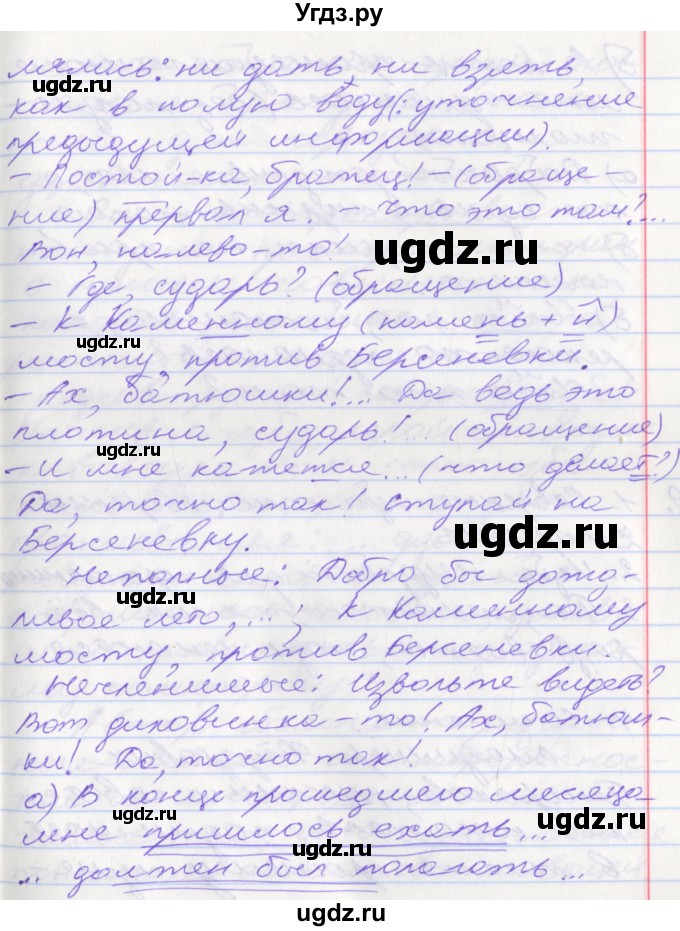 Угдз.ру
лялась: ни дать, ни взять,
как в полую воду (: уточнение
предыдущей информации).
- Постой-ка, братец! - (обраще-
ние) прервал я. - Что это там?...
Вон, налево-то!
- Где, сударь? (обращение)
- К Каменному (камень + н)
мосту, против Берсеневки.
- Ах, батюшки!... Да ведь это
плотина, сударь!... (обращение)
- И мне кажется... (что делает?)
Да, точно так! Ступай на
Берсеневку.
Неполные: Добро бы дожд-
ливое лето, ...; К Каменному
мосту, против Берсеневки.
Нечленимые: Извольте видеть?
Вот диковинка-то! Ах, батюш-
ки! Да, точно так!
а) В конце прошедшего месяца
мне пришлось ехать...
... должен был полагать...
ugdz.ru
ugdz.ru
ugdz.ru
ugdz.ru
ugdz.ru
ugdz.ru
ugdz.ru
ugdz.ru
ugdz.ru
ugdz.ru